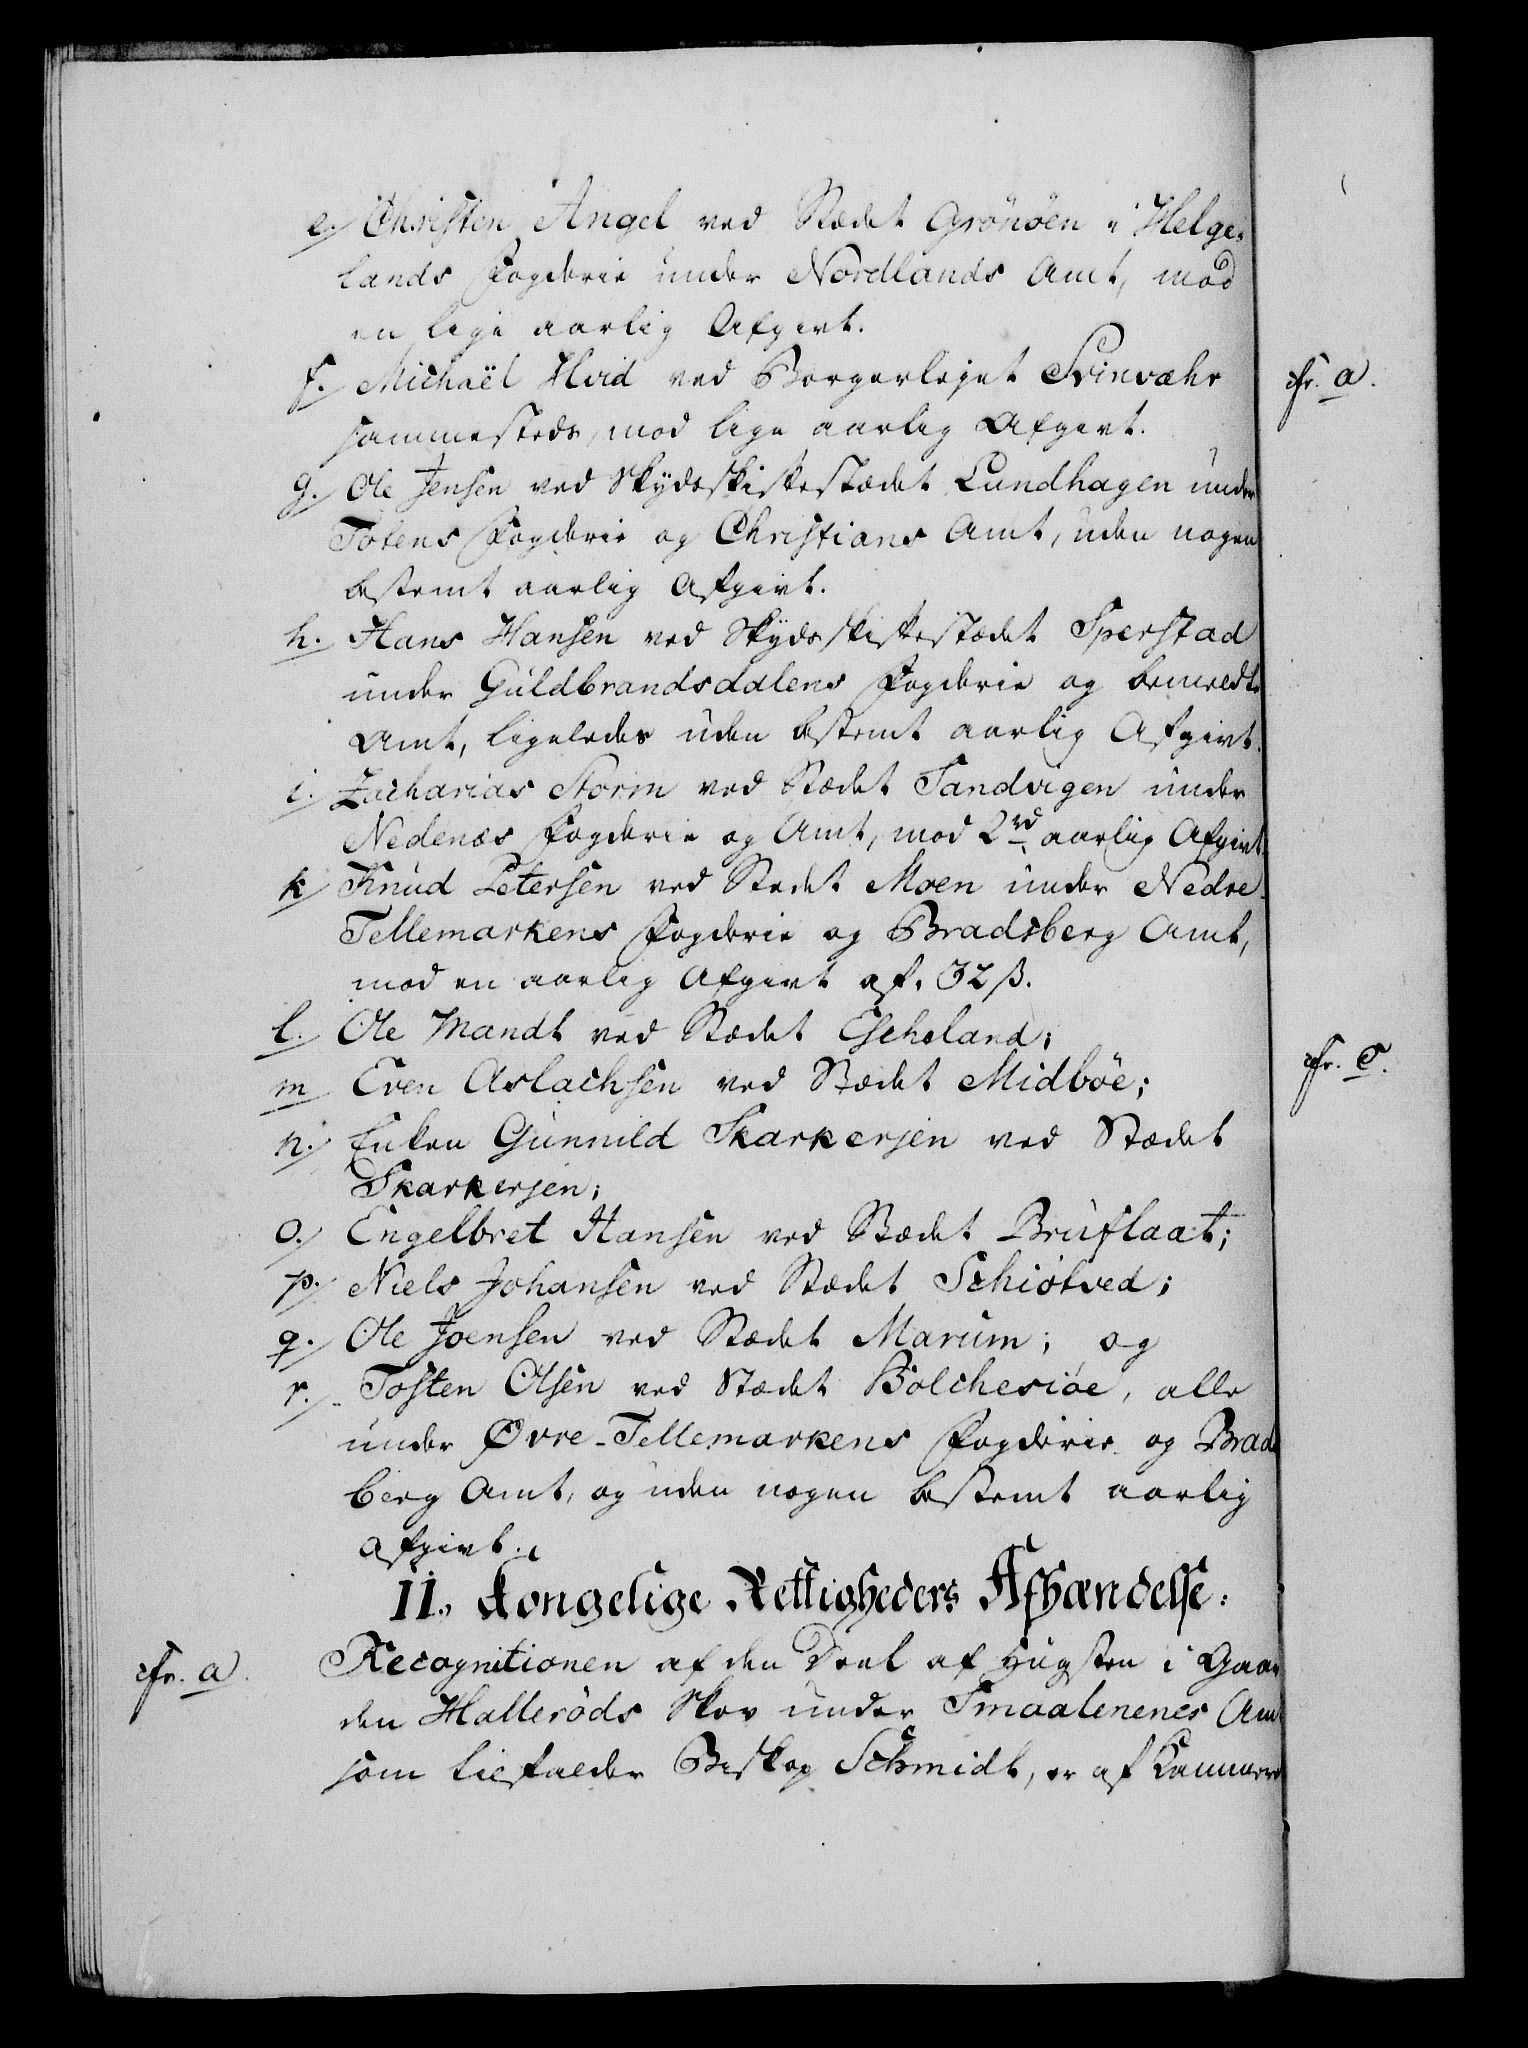 e. Christen Angel ved Stædet Grönöen i Helge-
lands Fogderie under Nordlands Amt, mod
en lige aarlig Afgivt.
f. Michaël Hvid ved Borgerlejet Svinvæhr
sammesteds, mod lige aarlig Afgivt.
g. Ole Jensen ved Skydsskiftestædet Lundhagen under
Totens Fogderie og Christians Amt, uden nogen
bestemt aarlig Afgivt.
h. Hans Hansen ved Skydsskiftestædet Sperstad
under Guldbrandsdalens Fogderie og bemeldte
Amt, ligeledes uden bestemt aarlig Afgivt.
i. Zacharias Storm ved Stædet Sandvigen under
Nedenæs Fogderie og Amt, mod 2 rd aarlig Afgivt.
k Knud Petersen ved Stedet Moen under Nedre-
Tellemarkens Fogderie og Bradsberg Amt,
mod en aarlig Afgivt af 32 ß.
l. Ole Mandt ved Stædet Escheland;
m Even Aslachsen ved Stædet Midböe;
n. Enken Gunnild Skarkersen ved Stædet
Skarkersen;
o. Engelbret Hansen ved Stædet Bruflaat;
p. Niels Johansen ved Stædet Schiötved;
q. Ole Joensen ved Stædet Marum; og
r. Tosten Olsen ved Stædet Bolchesiöe, alle
under Øvre-Tellemarkens Fogderie og Brads
berg Amt, og uden nogen bestemt aarlig
Afgivt.
II. Kongelige Rettigheders Afhændelse.
cfr. a. Recognitionen af den Deel af Hugsten i Gaar
den Halleröds Skov under Smaalenenes Amt
som tilfalder Biskop Schmidt, er af Kammere
cfr. a.
cfr. c.